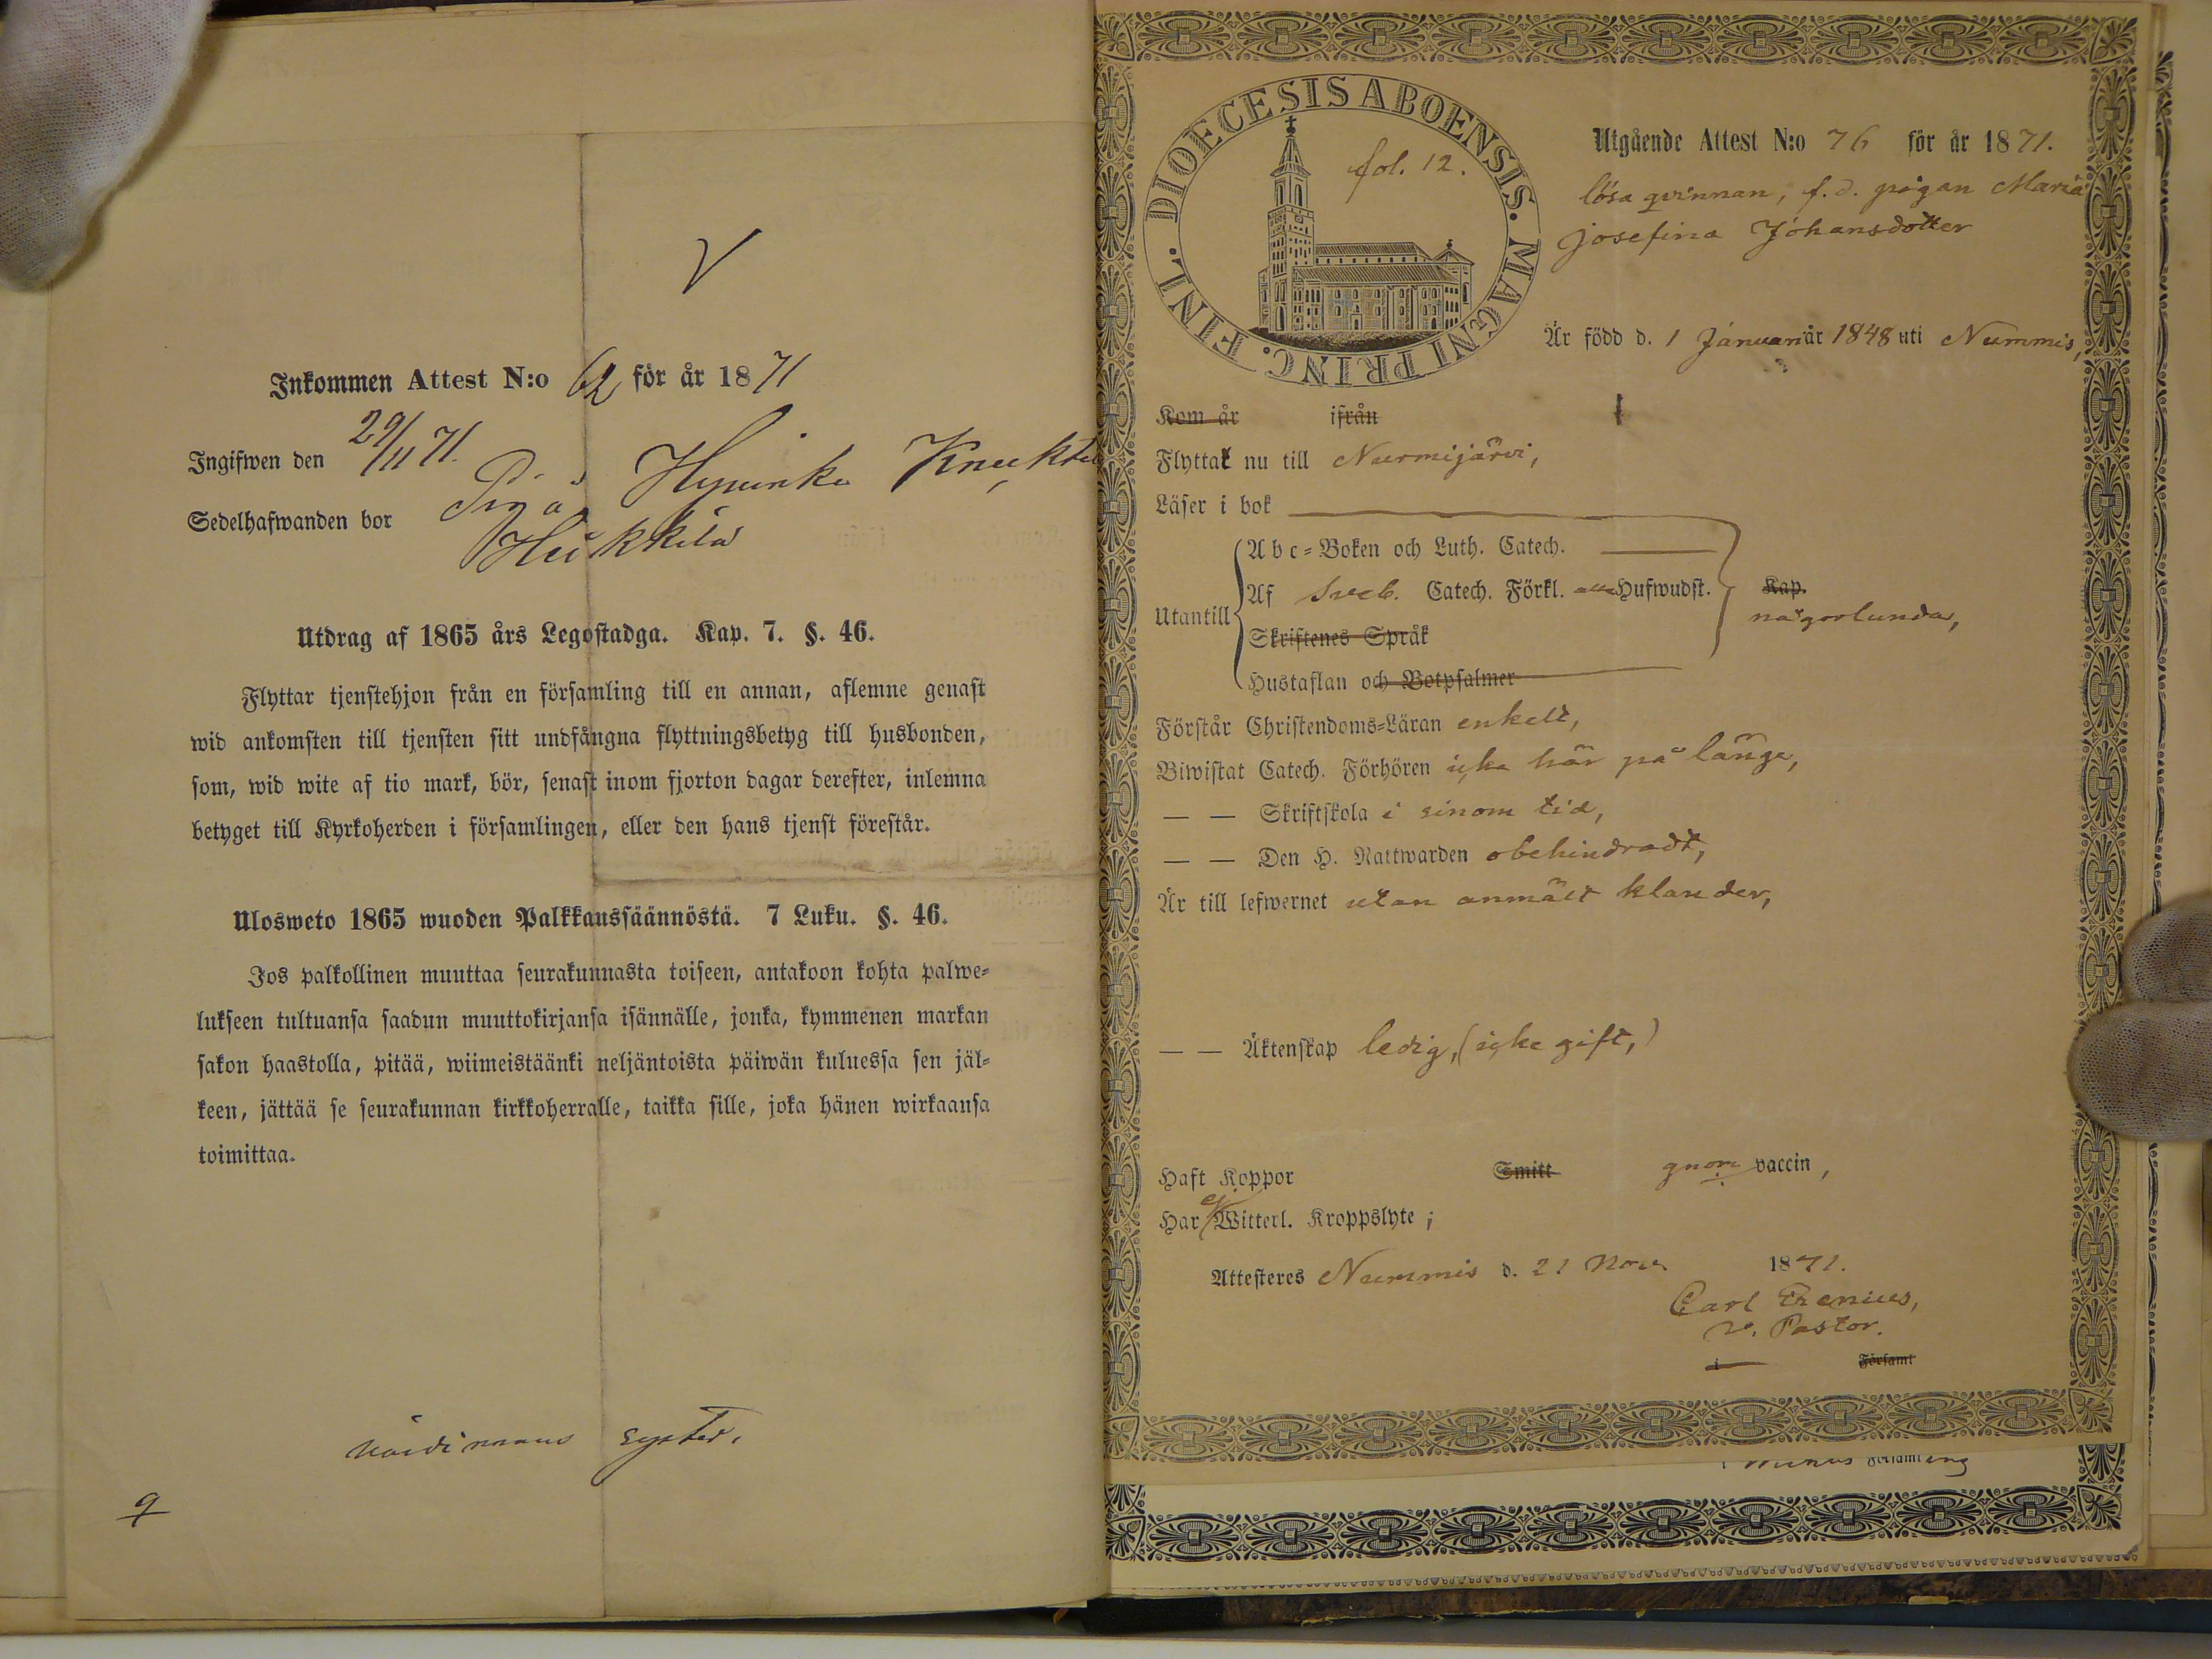 V
Inkommen Attest N:o 62 för år 1871
Ingifwen den 29/11 71.
Sedelhafwanden bor Piga Hyvinke Knuktila
Hukkila
Utdrag af 1865 års Legostadga. Kap. 7. §. 46.
Flyttar tjenstehjon från en församling till en annan, aflemne genast
wid ankomsten till tjensten sitt undfångna flyttningsbetyg till husbonden,
som, wid wite af tio mark, bör, senast inom fjorton dagar derefter, inlemna
betyget till Kyrkoherden i församlingen, eller den hans tjenst förestår.
Ulosweto 1865 wuoden Palkkaussäännöstä. 7 Luku. §. 46.
Jos palkollinen muuttaa seurakunnasta toiseen, antakoon kohta palwe-
lukseen tultuansa saadun muuttokirjansa isännälle, jonka, kymmenen markan
sakon haastolla, pitää, wiimeistäänki neljäntoista päiwän kuluessa sen jäl-
keen, jättää se seurakunnan kirkkoherralle, taikka sille, joka hänen wirkaansa
toimittaa.
9
DIOECESIS ABOENSIS. MAGNI PRINC. FINL.
fol. 12.
Utgående Attest N:o 76 för år 1871.
lösa qvinnan, f.d. pigan Maria
Josefina Johansdotter
Är född d. 1 Januari år 1848 uti Nummis,
Kom år ifrån
Flyttat nu till Nurmijärvi,
Läser i bok
Utantill
Abc-Boken och Luth. Catech.
Af Sveb. Catech. Förkl. alla Hufwudst.
Kap.
någorlunda,
Skriftenes Språk
Hustaflan och Botpsalmer
Förstår Christendoms-Läran enkelt,
Biwistat Catech. Förhören icke här på länge,
— — Skriftskola i sinom tid,
— — Den H. Nattwarden obehindradt,
Är till lefwernet utan anmält klander,
— — Äktenskap ledig, (icke gift,)
Haft Koppor Smitt gnom vaccin,
Har ej Witterl. Kroppslyte;
Attesteres Nummis d. 21 Nov. 1871.
Carl Frenius,
v. Pastor.
i Församl